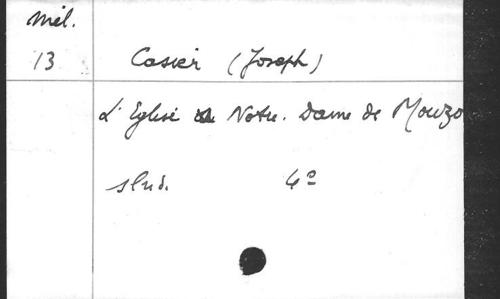 Mél.
13 Casier (Joseph)
L'Eglise de Notre. Dame de Mouzo
slnd. 4º